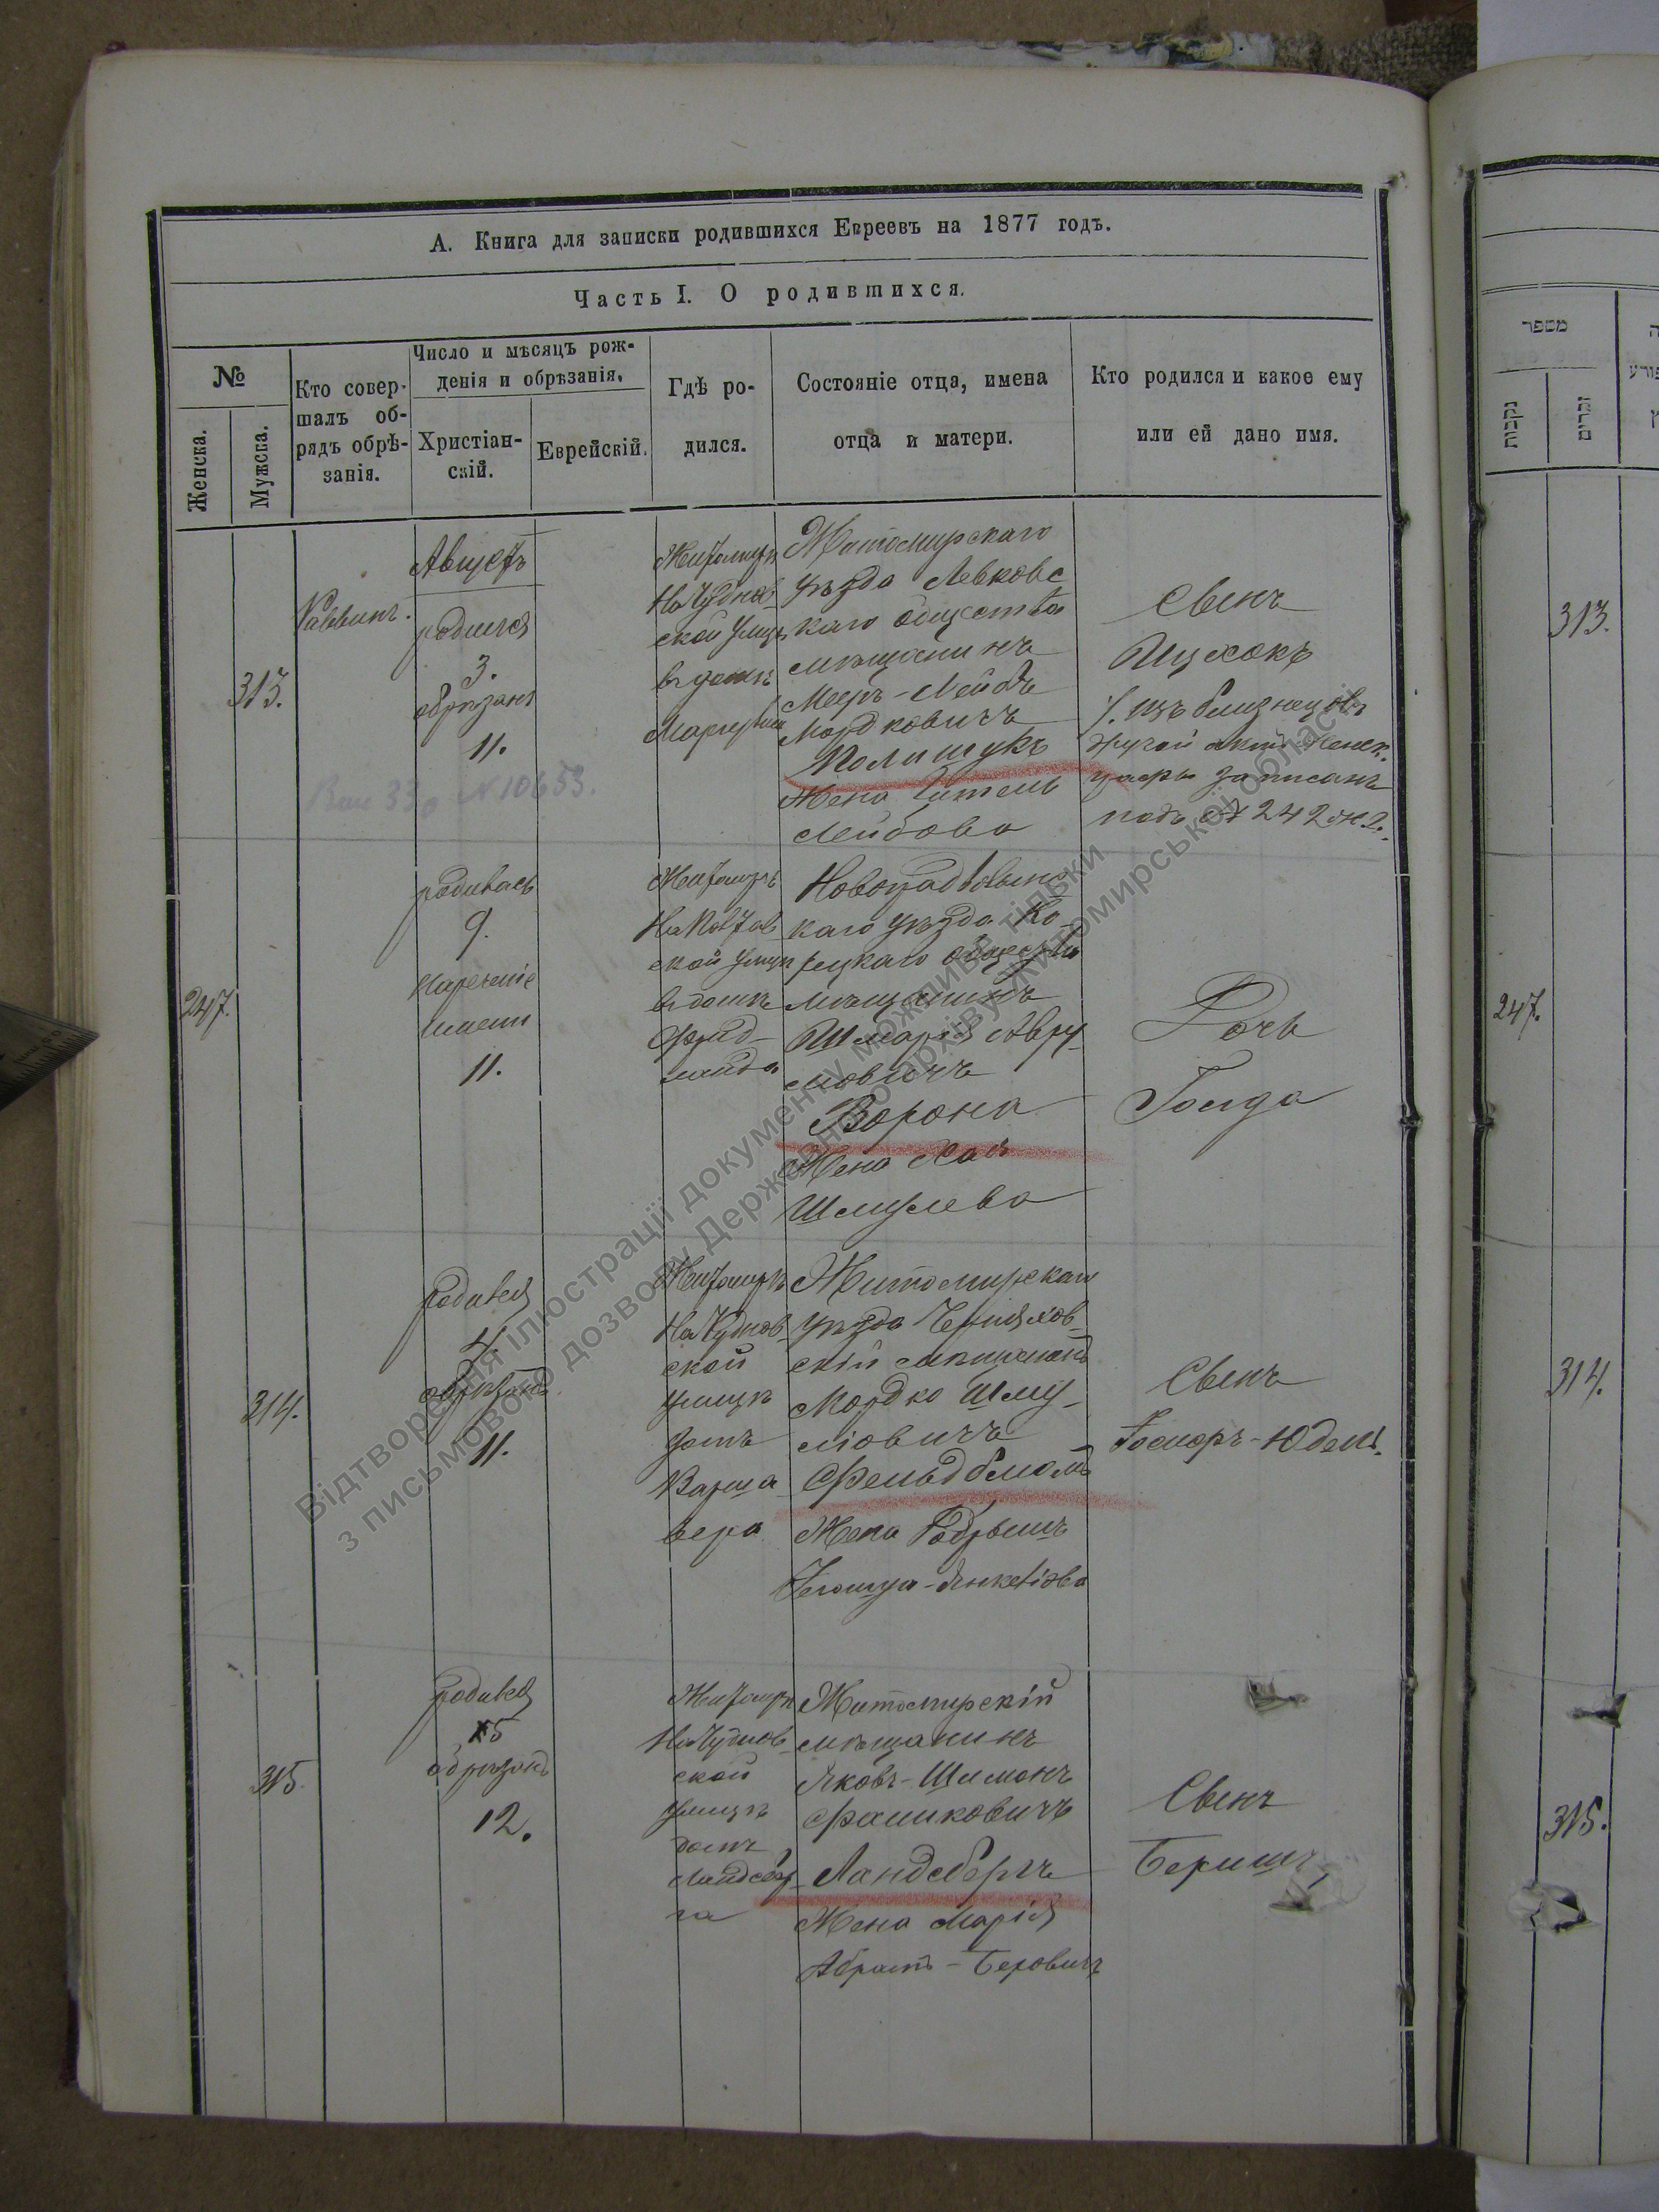 А. Книга для записки родившихся Евреевъ на 1877 годъ.
Часть I. О родившихся.
№
Женска.
Мужска.
Кто совер-
шалъ об-
рядъ обрѣ-
занія.
Число и мѣсяцъ рож-
денія и обрѣзанія.
Христіан-
скій.
Еврейскій.
Гдѣ ро-
дился.
Состояніе отца, имена
отца и матери.
Кто родился и какое ему
или ей дано имя.
313.
Раввинъ.
Августъ
родился
3.
обрѣзанъ
11.
№ 10653.
Житомиръ
На Чуднов
ской улицѣ
в домѣ
Житомирскаго
уѣзда Левковс
каго общества
мѣщанинъ
Мееръ-Лейбъ
Мордковичъ
Полищукъ
Жена
Лейбова
Сынъ
Ицхокъ
изъ близнецовъ
другой
записанъ
подъ № 242
247.
родилась
9.
нареченіе
имени
11.
Житомиръ
ской улицѣ
в домѣ
Фрид-
манда
Новоградволынс
каго уѣзда Ко-
рецкаго общества
мѣщанинъ
Шмарія Авру-
мовичъ
Ворона
Жена Хая
Шмулева
Дочь
Гольда
314.
родился
4.
обрѣзанъ
11.
Житомиръ
На Чуднов-
ской
улицѣ
домъ
Варша-
вера
Житомирскаго
уѣзда Черняхов-
скій мѣщанинъ
Мордко Шму-
ліовичъ
Фельдблюмъ
Жена
Сынъ
Іосифъ-Юдель.
315.
родился
5
обрѣзанъ
12.
Житомиръ
На Чуднов-
ской
улицѣ
домъ
Ландсбер-
га
Житомирскій
мѣщанинъ
Яковъ-Шимонъ
Файшковичъ
Ландсбергъ
Жена Марія
Абрамъ-Беровичъ
Сынъ
Беришъ
מספר
נקבות
זכרים
313.
247.
314.
315.
Відтворення ілюстрації документу можливе тільки
з письмового дозволу Державного архіву Житомирської області